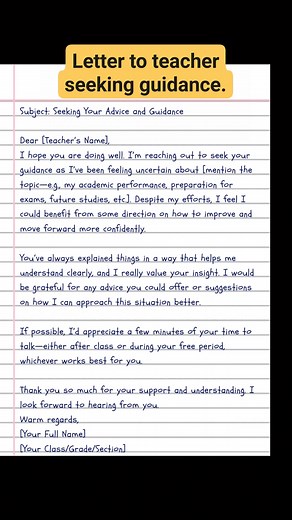 Letter to teacher
seeking guidance.
Subject: Seeking Your Advice and Guidance
Dear [Teacher's Name],
I hope you are doing well. I'm reaching out to seek your
guidance as I've been feeling uncertain about [mention the
topic—e.g., my academic performance, preparation for
exams, future studies, etc.]. Despite my efforts, I feel I
could benefit from some direction on how to improve and
move forward more confidently.
You've always explained things in a way that helps me
understand clearly, and I really value your insight. I would
be grateful for any advice you could offer or suggestions
on how I can approach this situation better.
If possible, I'd appreciate a few minutes of your time to
talk—either after class or during your free period,
whichever works best for you.
Thank you so much for your support and understanding. I
look forward to hearing from you.
Warm regards,
[Your Full Name]
[Your Class/Grade/Section]